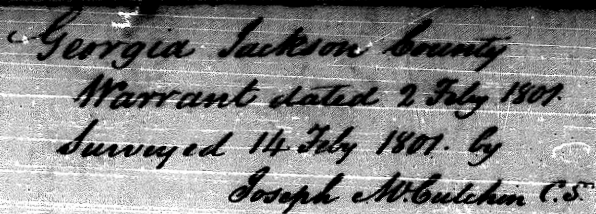 Georgia Jackson County
Warrant dated 2 Feby 1801.
Surveyed 14 Feby 1801. by
Joseph McCutchin C.S.